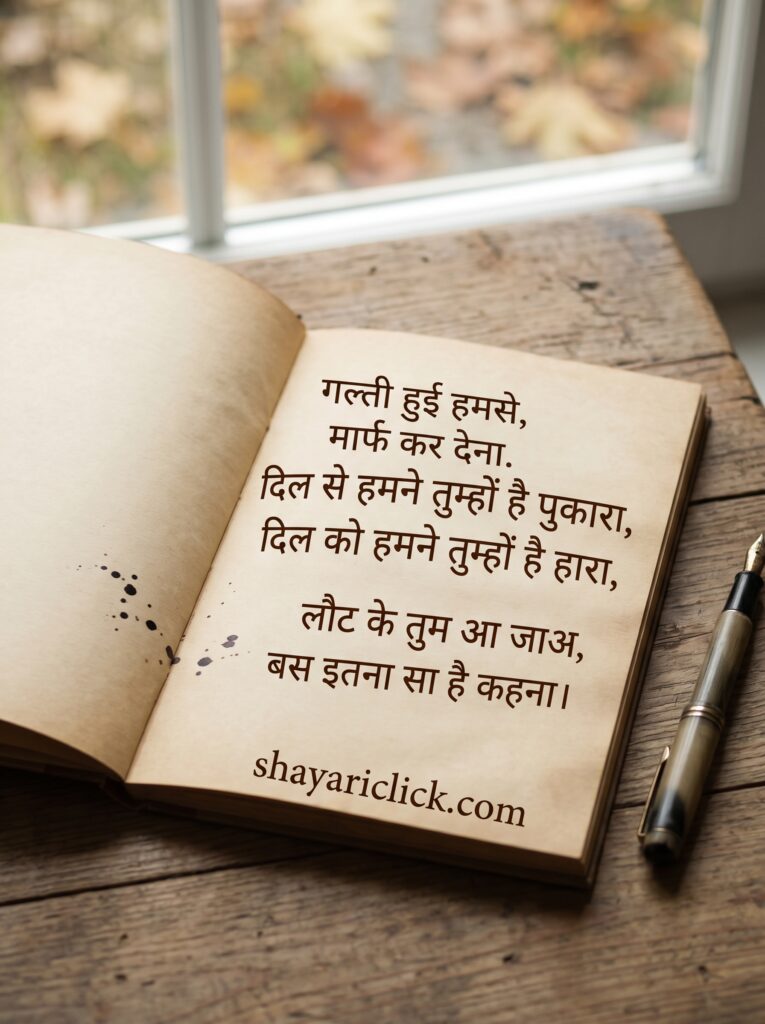 गल्ती हुई हमसे,
मार्फ कर देना.
दिल से हमने तुम्हों है पुकारा,
दिल को हमने तुम्हों है हारा,
लौट के तुम आ जाअ,
बस इतना सा है कहना।
shayariclick.com